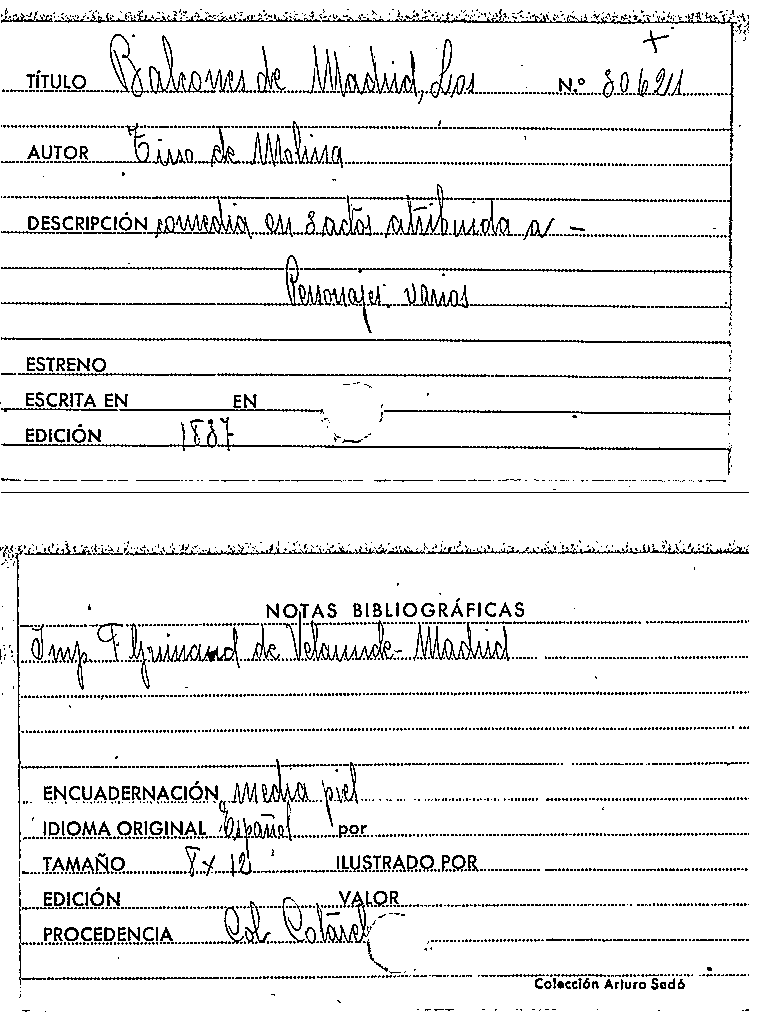 TÍTULO Balcones de Madrid, Los N.º 80621
AUTOR Tirso de Molina
DESCRIPCIÓN comedia en 3 actos atribuida a -
Personajes: varios
ESTRENO
ESCRITA EN EN
EDICIÓN 1837
NOTAS BIBLIOGRÁFICAS
Imp. de Madrid
ENCUADERNACIÓN media piel
IDIOMA ORIGINAL Español por
TAMAÑO 8 x 12 ILUSTRADO POR
EDICIÓN VALOR
PROCEDENCIA Col. Cotarelo
Colección Arturo Sedó